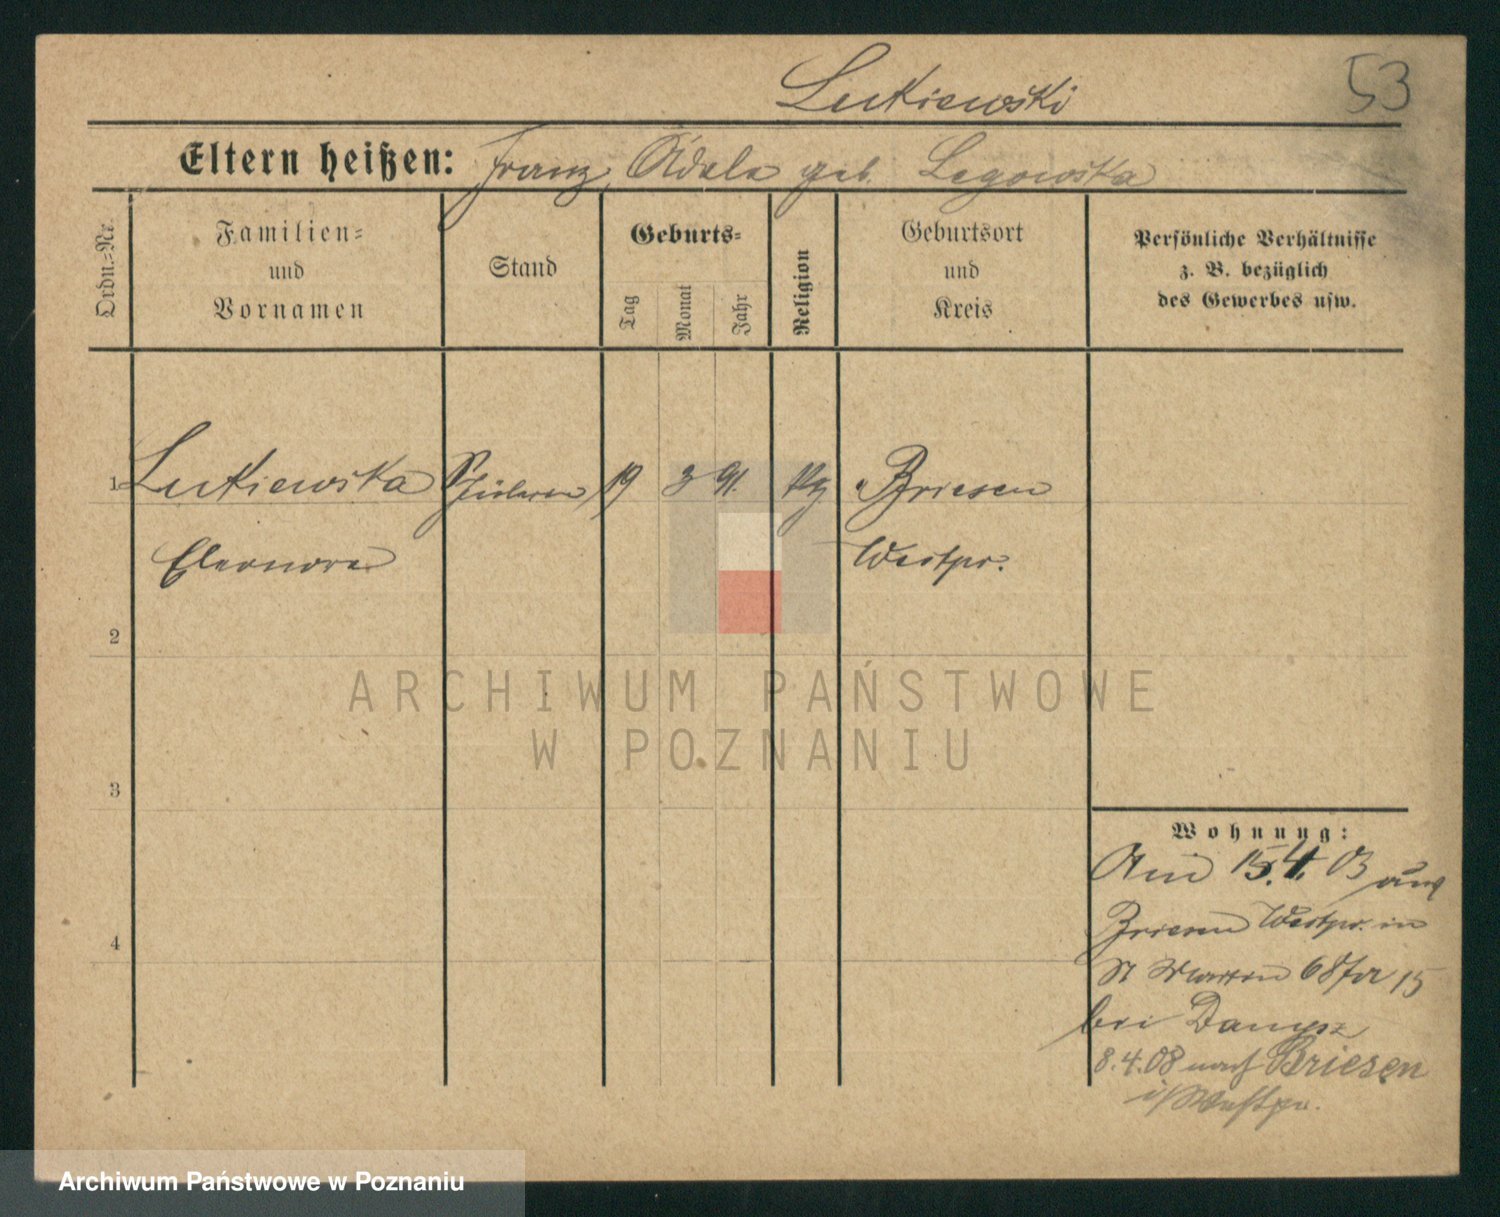 Lutkiewski
53
Eltern heißen: Franz, Adela geb. Legowska
Ordn.=Nr.
Familien=
und
Vornamen
Stand
Geburts=
Tag
Monat
Jahr
Religion
Geburtsort
und
Kreis
Persönliche Verhältnisse
z. B. bezüglich
des Gewerbes usw.
1 Lutkiewska Schülerin 19 3 91. Briesen
Eleonora Westpr.
2
3
4
Wohnung:
Am 15.4.03 aus
Briesen Westpr. in
St Martin 68 15
bei Damysz
8.4.08 nach Briesen
i/Westpr.
ARCHIWUM PAŃSTWOWE
W POZNANIU
Archiwum Państwowe w Poznaniu